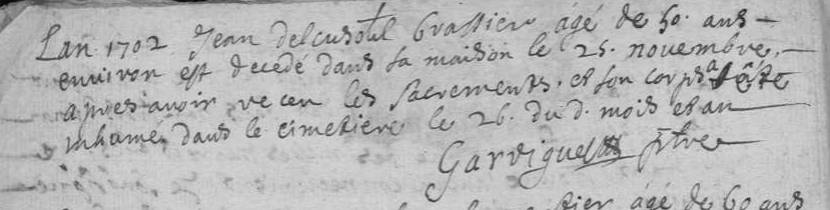 Lan 1702 Jean delcusoul brassier agé de 50. ans
environ est decedé dans sa maison le 25. novembre,
apres avoir receu les sacrements, et son corps a esté
inhumé dans le cimetiere le 26. du d. mois et an
Garrigues ptre
brassier agé de 60 ans